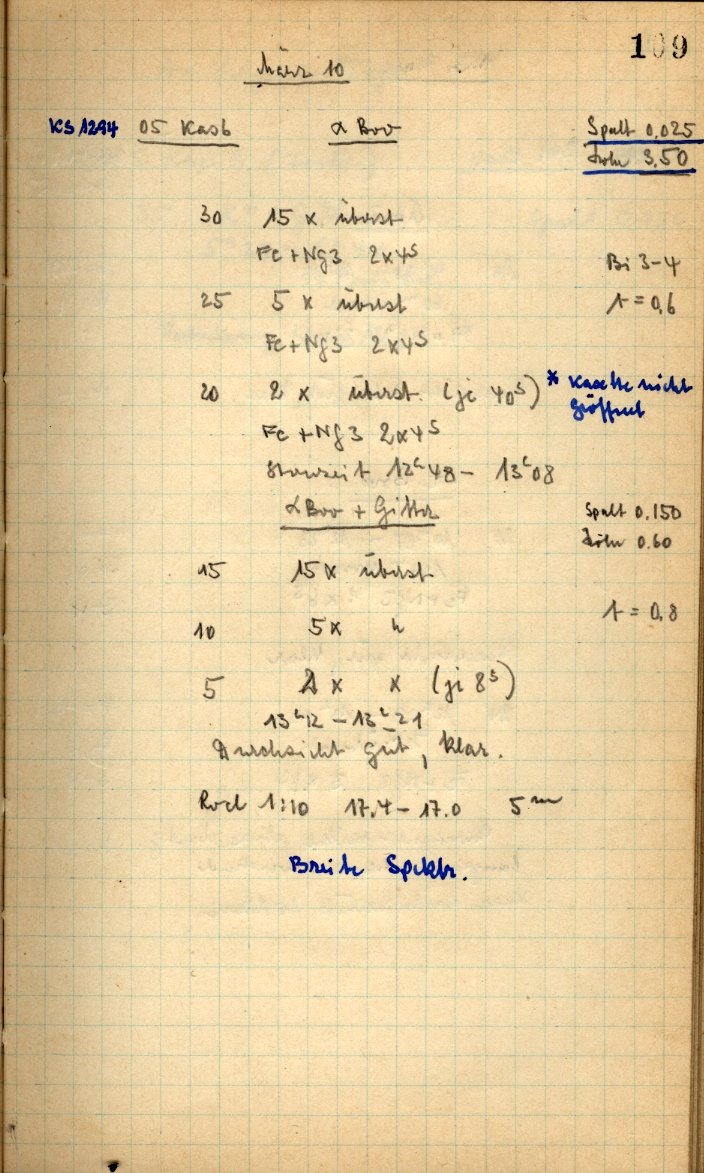 109
März 10
KS 1294 05 Kasb α Boo Spalt 0,025
Höhe 3,50
30 15 x überst
Fe + Ng3 2x4s
Bi 3-4
25 5 x überst
t = 0,6
Fe + Ng3 2x4s
20 2 x überst. (je 40s) * Kasette nicht
geöffnet
Fe + Ng3 2x4s
Sternzeit 12h48 - 13h08
α Boo + Gitter
Spalt 0.150
Höhe 0.60
15 15x überst
t = 0,8
10 5x "
5 2 x (je 8s)
13h12 - 13h21
Durchsicht gut, klar.
Rod 1:10 17.4 - 17.0 5m
Breite Spektr.